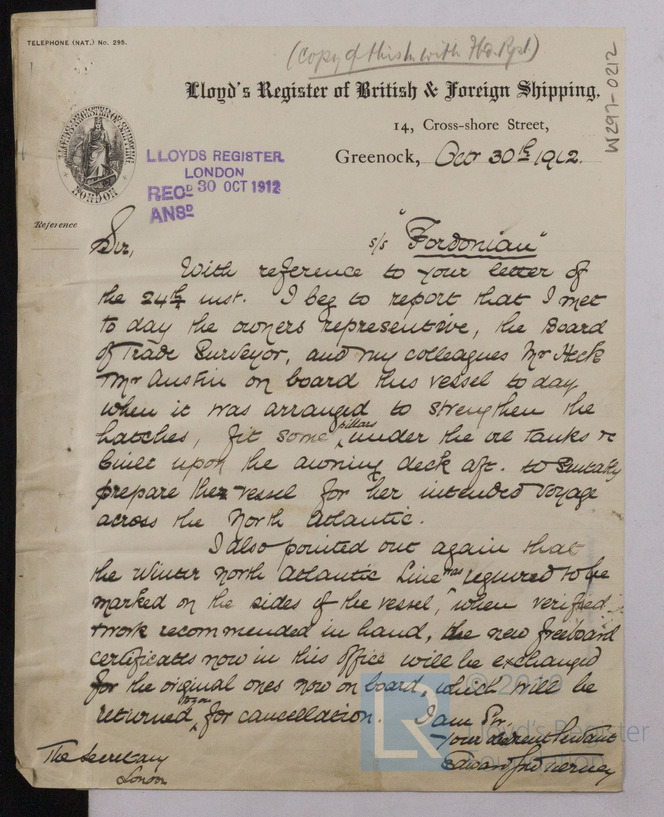 TELEPHONE (NAT.) No. 295.
(Copy of this h. with Fbd. Rpt.)
W297-0212
Lloyd's Register of British & Foreign Shipping.
14, Cross-shore Street,
Greenock, Octr 30th 1912.
LLOYD'S REGISTER OF SHIPPING
LONDON
LLOYDS REGISTER
LONDON
RECD 30 OCT 1912
ANSD
Reference
Sir,
s/s "Fordonian"
With reference to your letter of
the 24th inst. I beg to report that I met
to day the owners representive, the Board
of Trade Surveyor, and my colleagues Mr Heck
& Mr Austin on board this vessel to day
when it was arranged to strengthen the
hatches, fit some pillars under the oil tanks &c
built upon the awning deck aft. to suitably
prepare the vessel for her intended voyage
across the North Atlantic.
I also pointed out again that
the Winter North Atlantic Line was required to be
marked on the sides of the vessel, when verified
& work recommended in hand, the new freeboard
certificates now in this office will be exchanged
for the original ones now on board, which will be
returned to you for cancellation. I am Sir
Your obedient Servant
Edward Jno Tierney
The Secretary
London
LR
© 2019
Lloyd's Register
Foundation